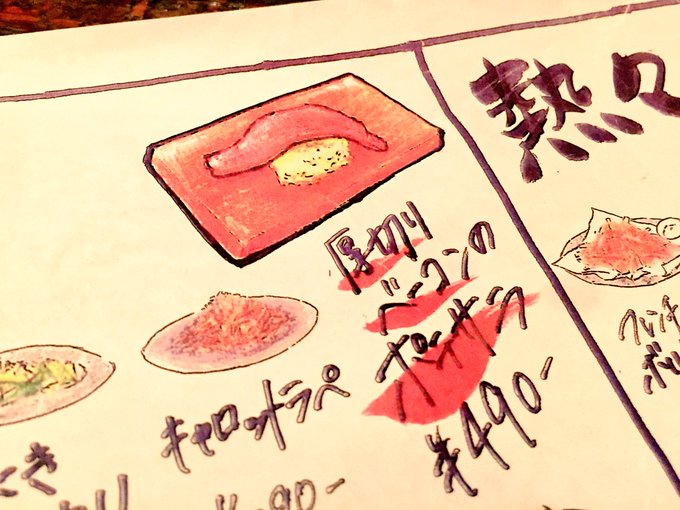 熱々
厚切り
ベーコンの
ポテサラ
¥490-
キャロットラペ
90-
フレンチ